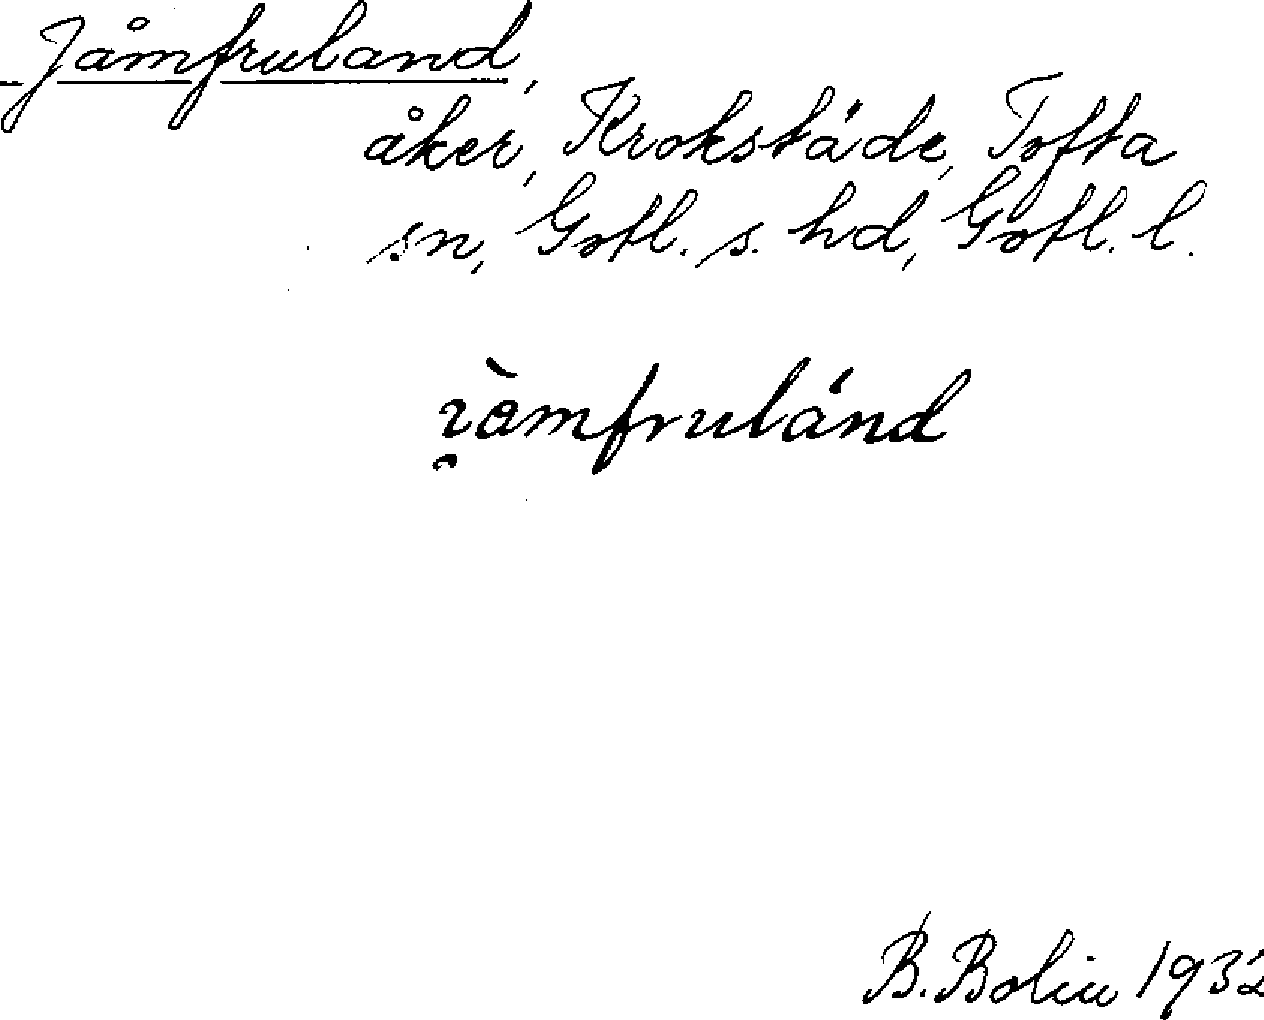 Jåmfruland,
åker, Krokstäde, Tofta
sn, Gotl. s. hd, Gotl. l.
i̯òmfrulánd
B. Bolin 1932